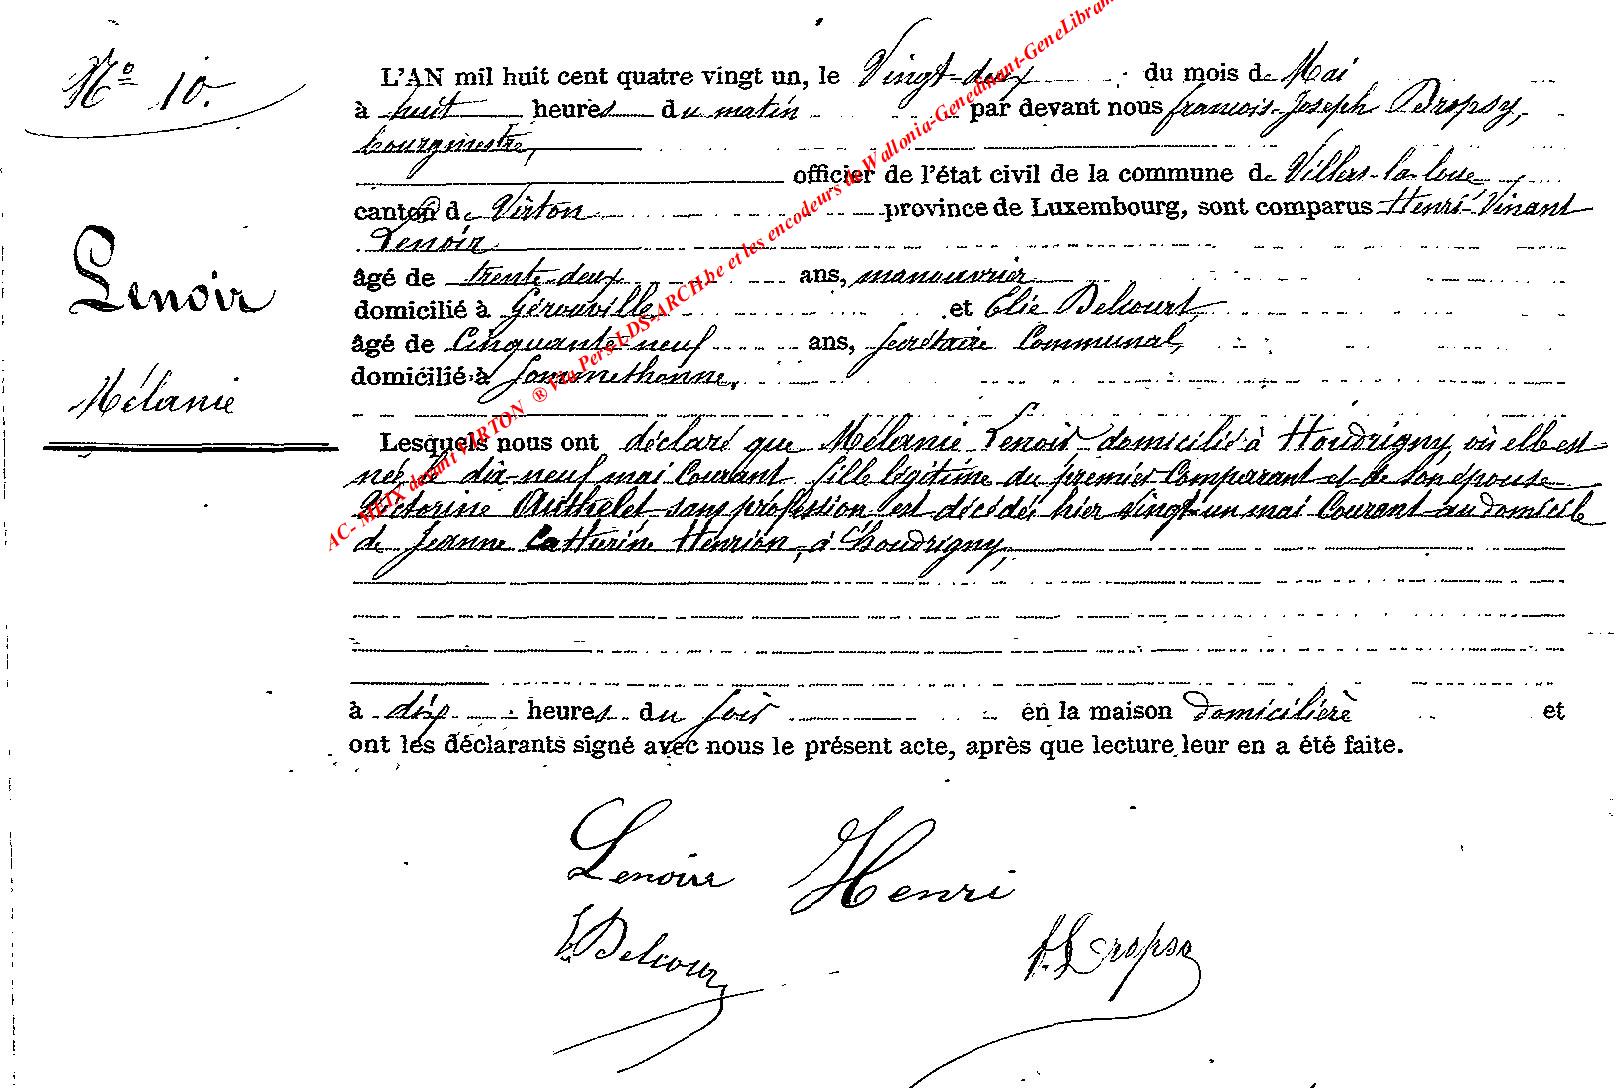 N° 10.
Lenoir
Mélanie
L'AN mil huit cent quatre vingt un, le Vingt-deux du mois de Mai
à huit heures du matin par devant nous françois-Joseph Dropsy,
bourgmestre,
officier de l'état civil de la commune de Villers-la-loue
canton de Virton province de Luxembourg, sont comparus Henri-Vinant
Lenoir
âgé de trente-deux ans, manouvrier
domicilié à Gérouville et Elie Delcourt,
âgé de Cinquante-neuf ans, Secrétaire Communal,
domicilié à Sommethonne,
Lesquels nous ont déclaré que Mélanie Lenoir domicilié à Houdrigny, où elle est
née le dix-neuf mai Courant fille légitime du premier Comparant et de son épouse
Victorine Authelet, sans profession est décédée hier Vingt-un mai Courant au domicile
de Jeanne Catherine Henrion, à Houdrigny,
à dix heures du soir en la maison domicilière et
ont les déclarants signé avec nous le présent acte, après que lecture leur en a été faite.
Lenoir Henri
E. Delcour
f. J. Dropsy
AC- MEIX devant VIRTON ® Via Pers LDS-ARCH.be et les encodeurs de Wallonia-Genedinant-GeneLibran